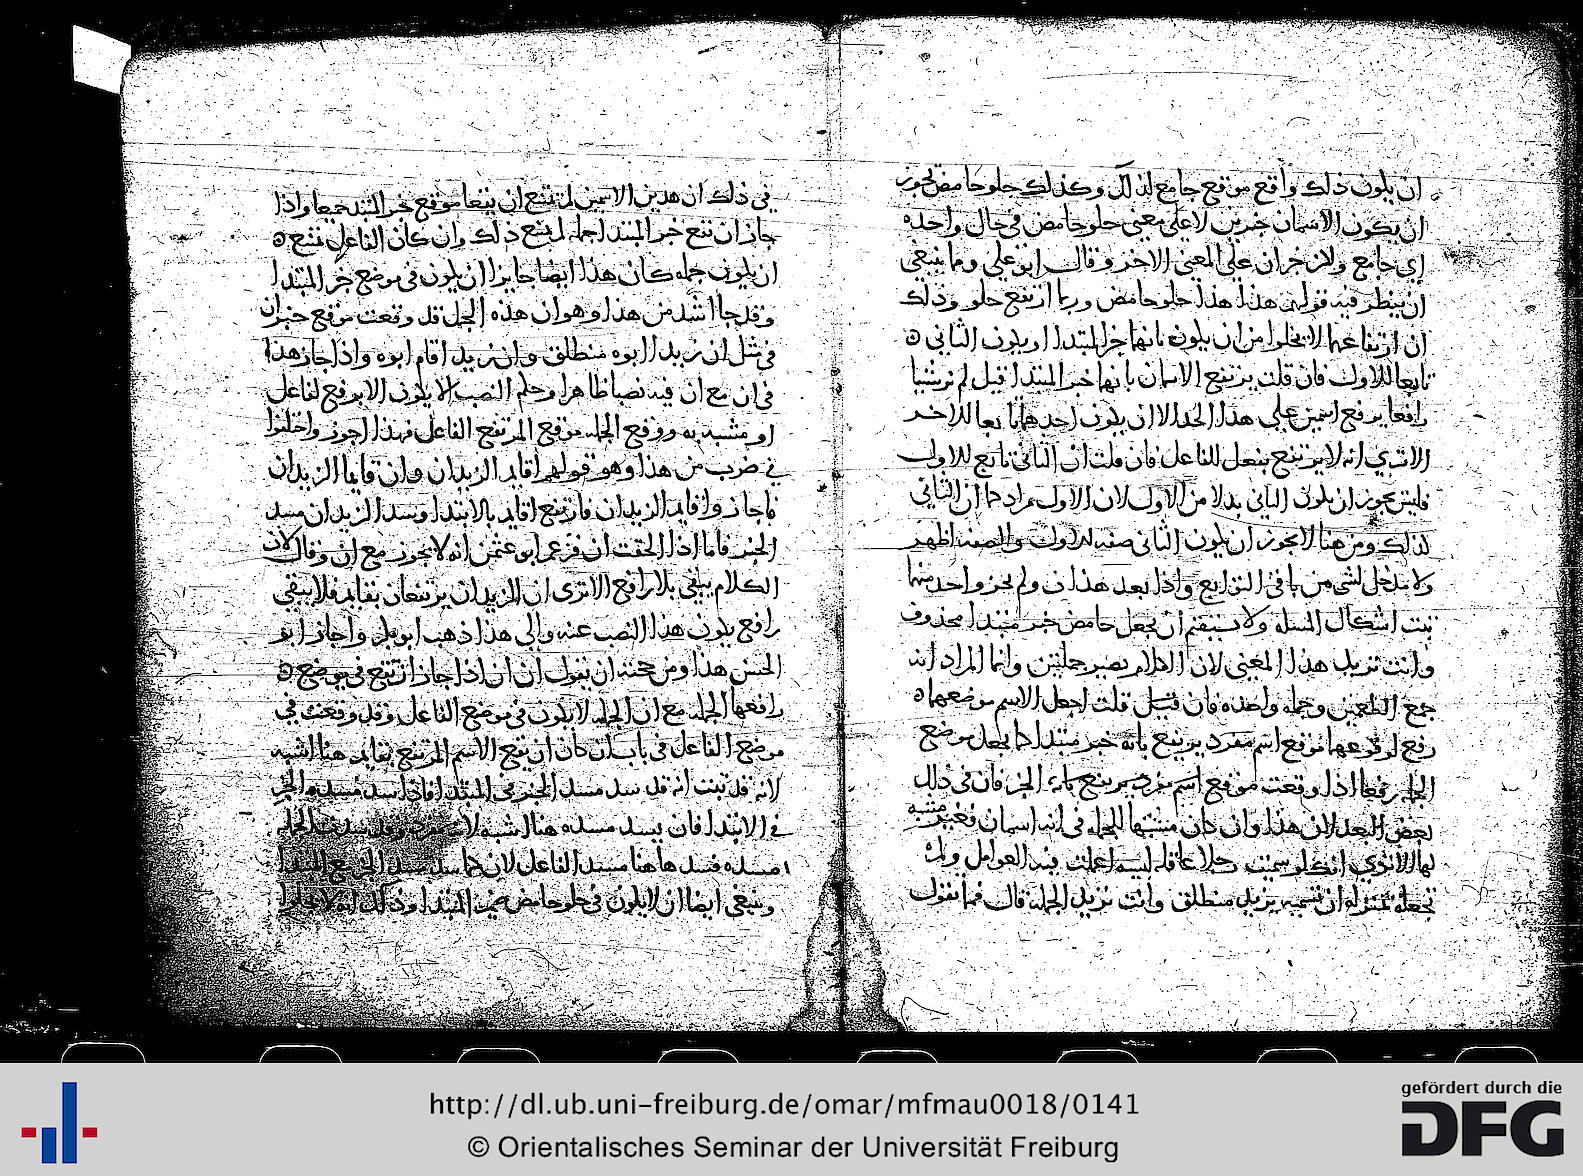 ان يكون ذلك واقع موقع جامع لذلك وكذلك حلو حامض يجوز
ان يكون الاسمان خبرين لا على معنى حلو حامض في حال واحده
اي جامع ولاخر ان على المعنى الاخر وقال ابو علي ومما ينبغي
ان ينظر فيه قولهم هذا هذا حلو حامض وربما ارتفع حلو وذلك
ان ارتفاعهما لا يخلوا من ان يكون بانهما خبر المبتدا او يكون الثاني
تابعا للاول فان قلت يرتفع الاسمان بانهما خبر المبتدا قيل لم نر شيا
رافعا يرفع اسمين على هذا الحد الا ان يكون احدهما تابعا للاخر
الا ترى انه لا يرتفع بفعل للفاعل فان قلت ان الثاني تابع للاول
فليس يجوز ان يكون الثاني بدلا من الاول لان الاول مراد كما ان الثاني
كذلك ومن هنا لا يجوز ان يكون الثاني صفه للاول والصفه اظهر
ولا مدخل لشي من باقي التوابع واذا بعد هذان ولم يجز واحد منهما
ثبت اشكال المسله ولا يستقيم ان تجعل حامض خبر مبتدا محذوف
وانت تريد هذا المعنى لان الكلام يصير جملتين وانما المراد انه
جمع الطعمين وجمله واحده فان قيل قلت اجعل الاسم موضعهما
رفع لوقوعهما موقع اسم مفرد يرتفع بانه خبر مبتدا كما يجعل موضع
الجمل رفعا اذا وقعت موقع اسم مفرد يرتفع بانه الخبر فان في ذلك
بعض البعد لان هذا وان كان مشبها للجمله في انه اسمان فغير مشبه
لها الا ترى انك لو سميت رجلا عاقله لبيبه اعملت فيه العوامل ولم
تجعله بمنزله ان تسميه بزيد منطلق وانت تريد الجمله قال فما نقول
في ذلك ان هذين الاسمين لم يمتنع ان يقعا موقع خبر المبتدا جميعا واذا
جاز ان تقع خبر المبتدا جمله لم يمتنع ذلك وان كان الفاعل يمتنع
ان يكون جمله كان هذا ايضا جايزا ان يكون في موضع خبر المبتدا
وقد جا اشد من هذا وهو ان هذه الجمل قد وقعت موقع خبر ان
في مثل ان زيدا ابوه منطلق وان زيدا قام ابوه واذا جاز هذا
في ان مع ان فيه نصبا ظاهرا وحكم النصب الا يكون الا برفع لفاعل
او مشبه به ووقع الجمله موقع المرتفع الفاعل فهذا اجوز واختلفوا
في ضرب من هذا وهو قولهم اقايم الزيدان وان قايما الزيدان
فاجازوا اقايم الزيدان فارتفع اقايم بالابتدا وسد الزيدان مسد
الخبر فاما اذا الحقت ان فزعم ابو عثمن انه لا يجوز مع ان وقال لان
الكلام يبقى بلا رافع الا ترى ان الزيدان يرتفعان بقايم فلا يبقى
رافع يكون هذا النصب عنه والى هذا ذهب ابو بكر واجاز ابو
الحسن هذا ومن حجته ان يقول ان ان اذا جاز ان تقع في موضع
رافعها الجمله مع ان الجمله لا يكون في موضع الفاعل وقد وقعت في
موضع الفاعل في باب ان كان ان يقع الاسم المرتفع بقايم هنا اشبه
لانه قد ثبت انه قد سد مسد الخبر في المبتدا فاذا سد مسده والخبر
في الابتدا فان يسد مسده هنا اشبه لانه مفرد وقد سدت الجمله
مسده فسد هاهنا مسد الفاعل لان كما سد مسد الخبر مع المبتدا
وينبغي ايضا ان لا يكون في حلو حامض ضمير المبتدا وذلك انه لا يخلوا
http://dl.ub.uni-freiburg.de/omar/mfmau0018/0141
© Orientalisches Seminar der Universität Freiburg
gefördert durch die
DFG